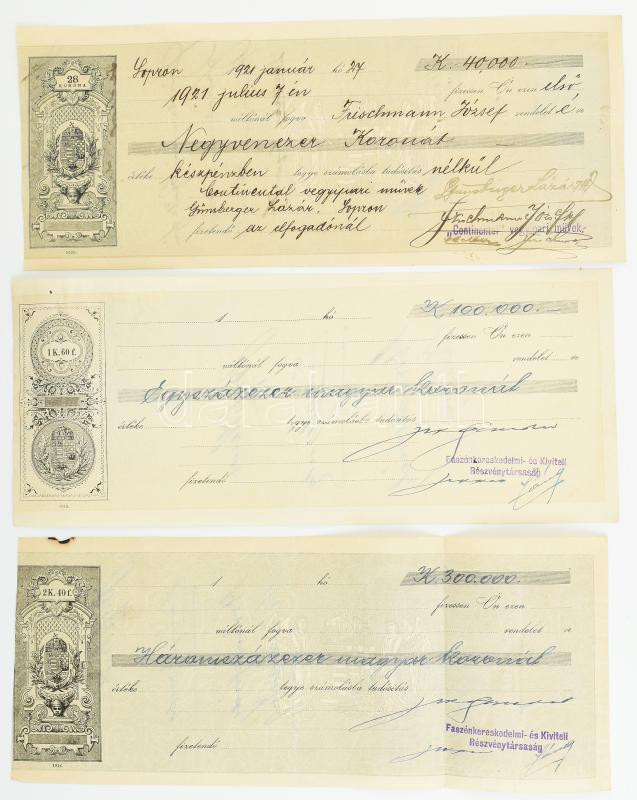 28
KORONA
Sopron 1921 január hó 27 K. 40,000.—
1921 július 7 én fizessen Ön ezen első
váltónál fogva Frischmann József rendeletére
Negyvenezer Koronát
értéke készpénzben tegye számolásba tudósítás nélkül
Continental vegyipari művek
Günsberger Lázár, Sopron
fizetendő az elfogadónál
Continental vegyipari művek
1 hó K 100.000.—
1 K. 60 f.
fizessen Ön ezen
váltónál fogva rendelet e
Egyszázezer magyar koronát
értéke tegye számolásba tudósítás
Faszénkereskedelmi- és Kiviteli
Részvénytársaság
fizetendő
1 hó K. 300.000.—
2 K. 40 f.
fizessen Ön ezen
váltónál fogva rendelet e
Háromszázezer magyar koronát
értéke tegye számolásba tudósítás
Faszénkereskedelmi- és Kiviteli
Részvénytársaság
fizetendő